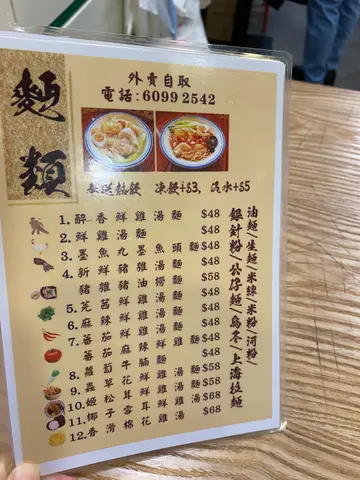 麵類
外賣自取
電話:6099 2542
套送熱飲 凍飲+$3, 汽水+$5
1. 醉香鮮雞湯麵 $48
2. 鮮雞湯麵 $48
3. 墨魚丸墨魚頭麵 $48
4. 新鮮豬雞湯麵 $48
豬雞豬油撈麵 $58
5. 芫荽鮮雞湯麵 $48
6. 麻辣鮮雞湯麵 $48
7. 番茄鮮雞湯麵 $48
番茄麻辣鮮雞湯麵 $48
8. 蘿蔔牛腩麵 $48
9. 蟲草花鮮雞湯麵 $58
10. 姬松茸鮮雞湯麵 $58
11. 椰子雪耳鮮雞湯 $68
12. 香滑棉花雞湯 $68
油麵/生麵/米線/米粉/河粉/
銀針粉/公仔麵/烏冬/上海拉麵